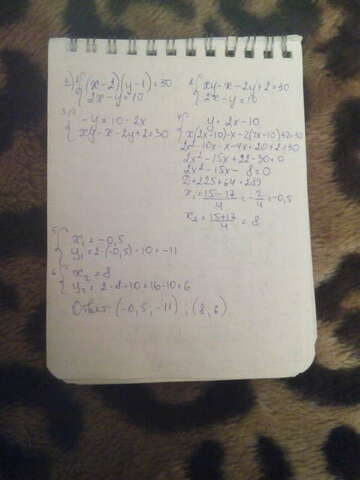 б) 1) { (x-2)(y-1)=30
2x-y=10
2) { xy-x-2y+2=30
2x-y=10
3) { -y=10-2x
xy-x-2y+2=30
4) { y=2x-10
x(2x-10)-x-2(2x-10)+2=30
2x²-10x-x-4x+20+2=30
2x²-15x+22-30=0
2x²-15x-8=0
D=225+64=289
x₁=15-17/4=-2/4=-0,5
x₂=15+17/4=8
5) { x₁=-0,5
y₁=2·(-0,5)-10=-11
6) { x₂=8
y₂=2·8-10=16-10=6
Ответ: (-0,5;-11);(8;6)